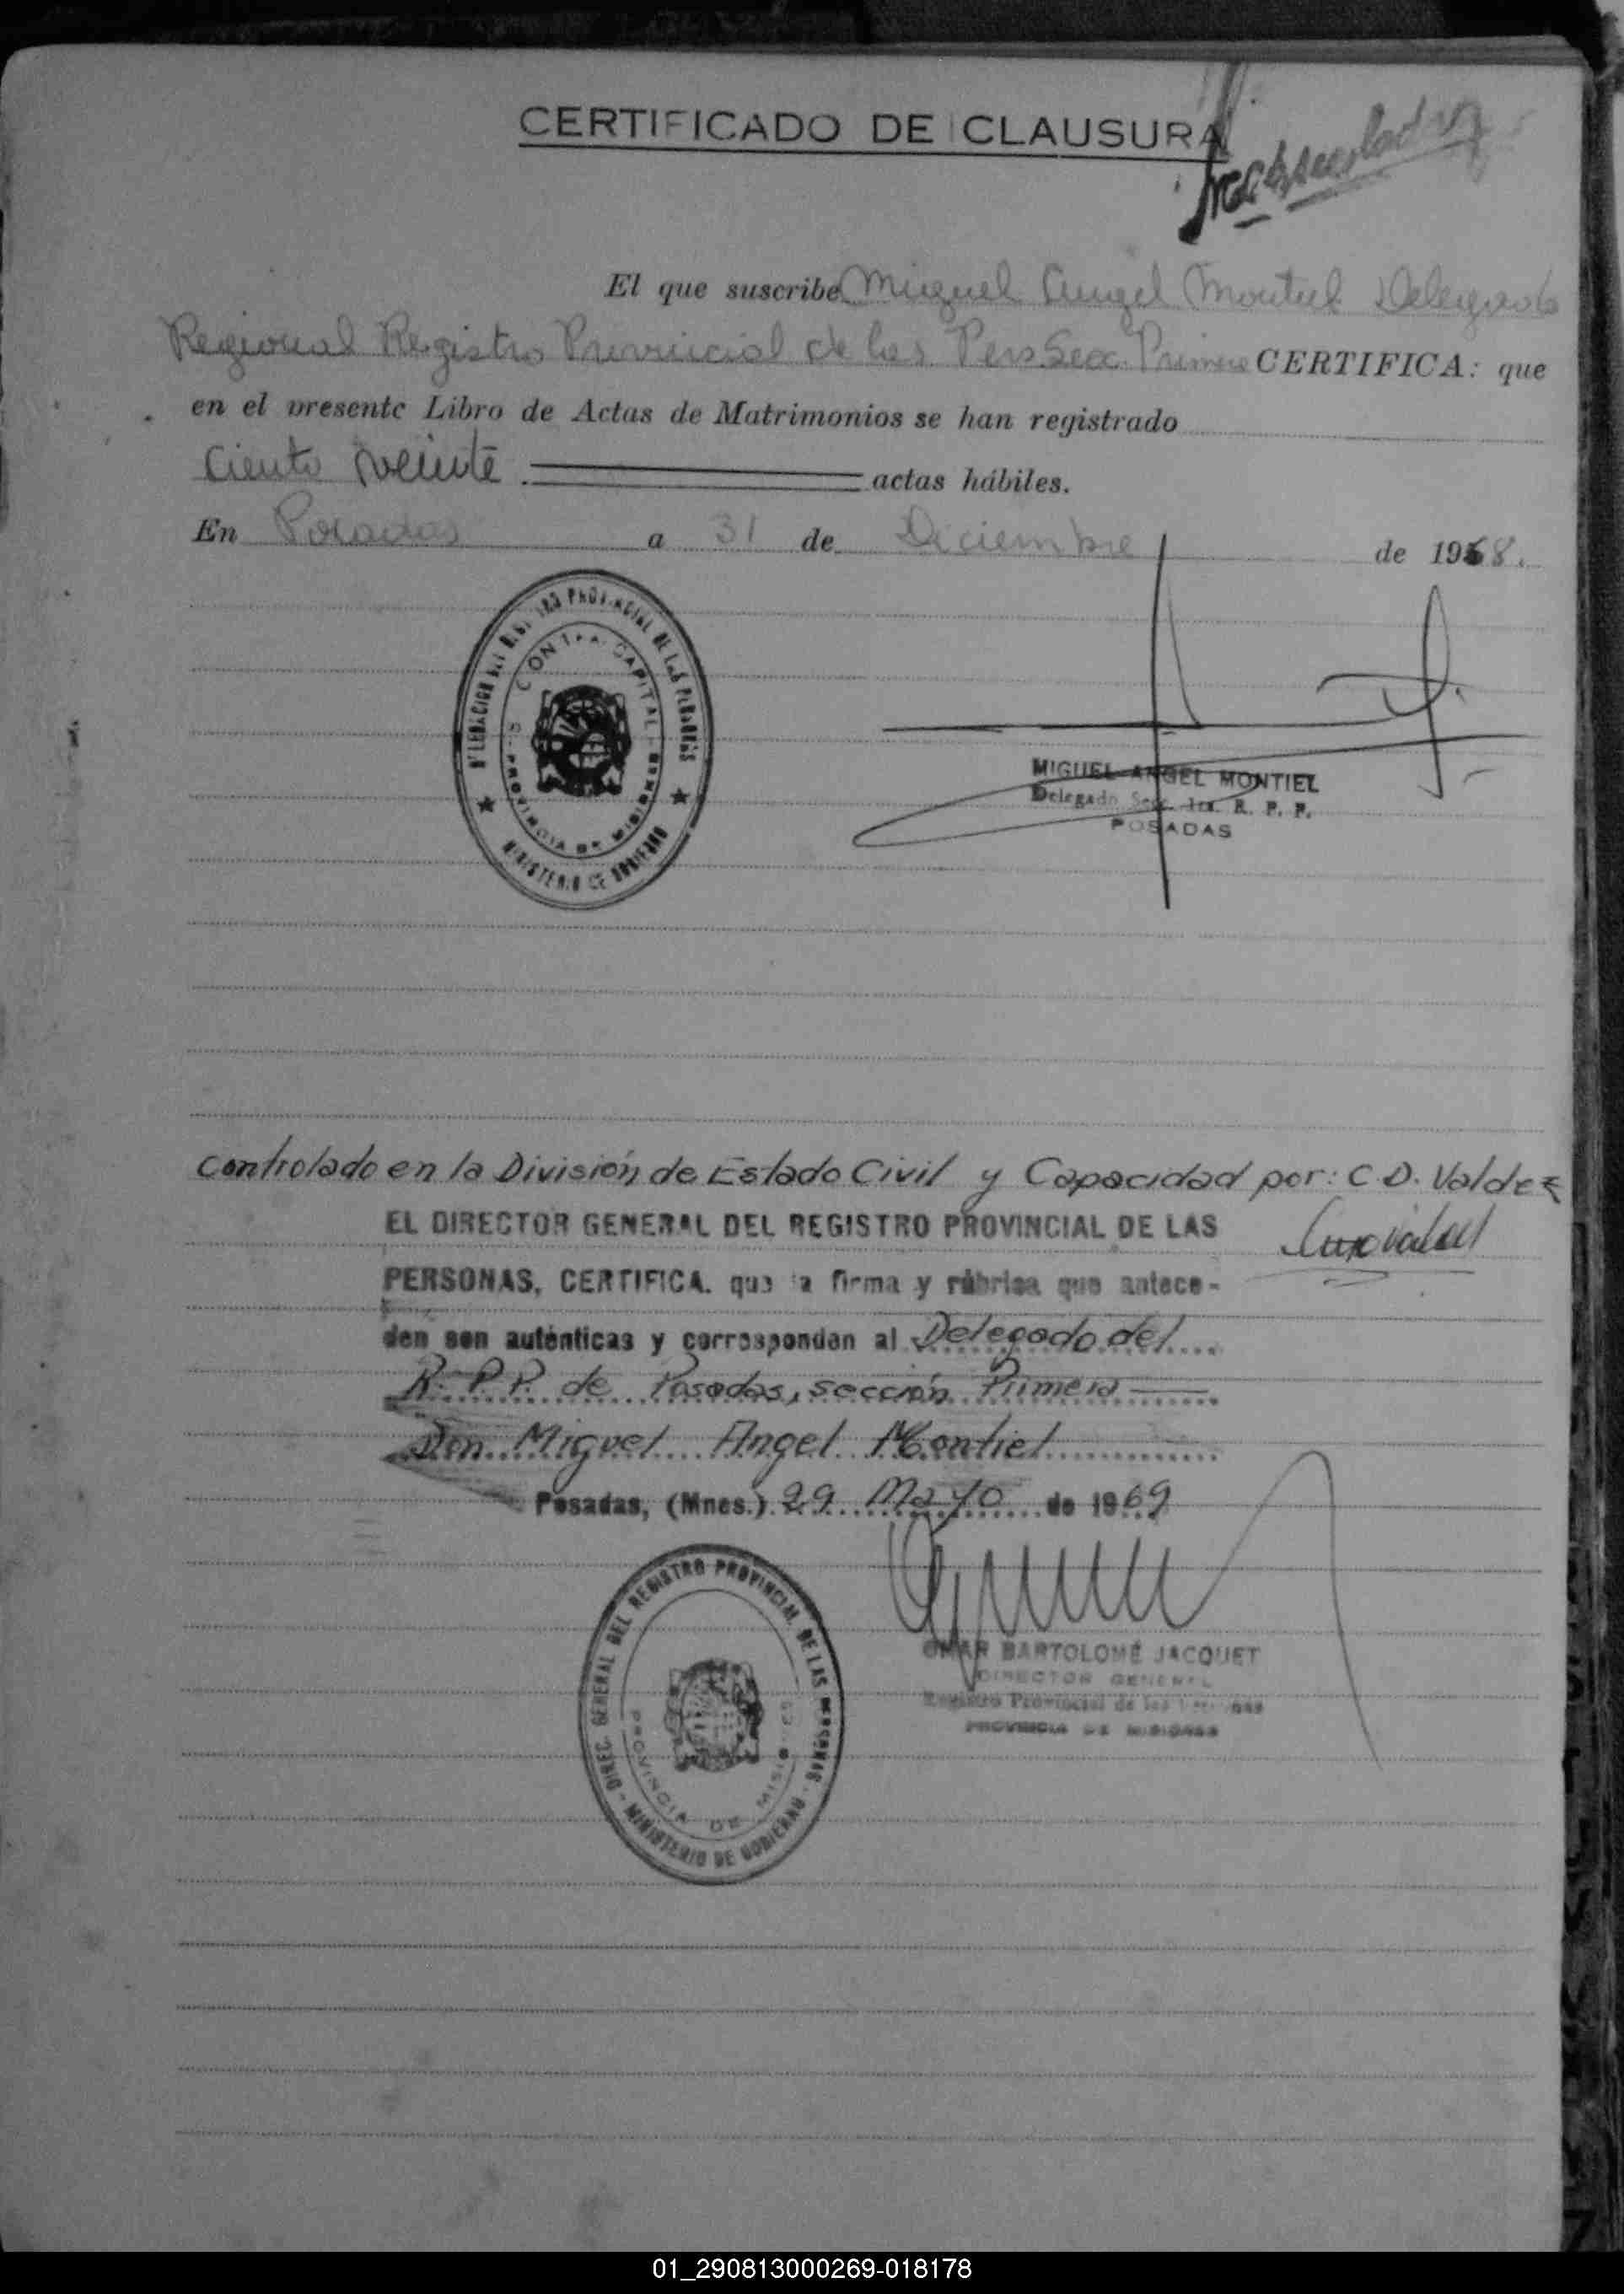 CERTIFICADO DE CLAUSURA
El que suscribe Miguel Angel Montiel Delegado
Regional Registro Provincial de las Pers Secc. Primera CERTIFICA: que
en el presente Libro de Actas de Matrimonios se han registrado
Ciento veinte actas hábiles.
En Posadas a 31 de Diciembre de 1968.
DELEGACION DEL REGISTRO PROVINCIAL DE LAS PERSONAS
CAPITAL
PROVINCIA DE MISIONES
MINISTERIO DE GOBIERNO
MIGUEL ANGEL MONTIEL
Delegado Secc. 1ra. R. P. P.
POSADAS
Controlado en la División de Estado Civil y Capacidad por: C.D. Valdez
EL DIRECTOR GENERAL DEL REGISTRO PROVINCIAL DE LAS
PERSONAS, CERTIFICA. que la firma y rúbrica que antece-
den son auténticas y corresponden al Delegado del
R.P.P. de Posadas, sección Primera
Don Miguel Angel Montiel
Posadas, (Mnes.) 29 Mayo de 1969
DIREC. GENERAL DEL REGISTRO PROVINCIAL DE LAS PERSONAS - MINISTERIO DE GOBIERNO
PROVINCIA DE MISIONES
OMAR BARTOLOMÉ JACQUET
DIRECTOR GENERAL
Registro Provincial de las Personas
PROVINCIA DE MISIONES
01_290813000269-018178